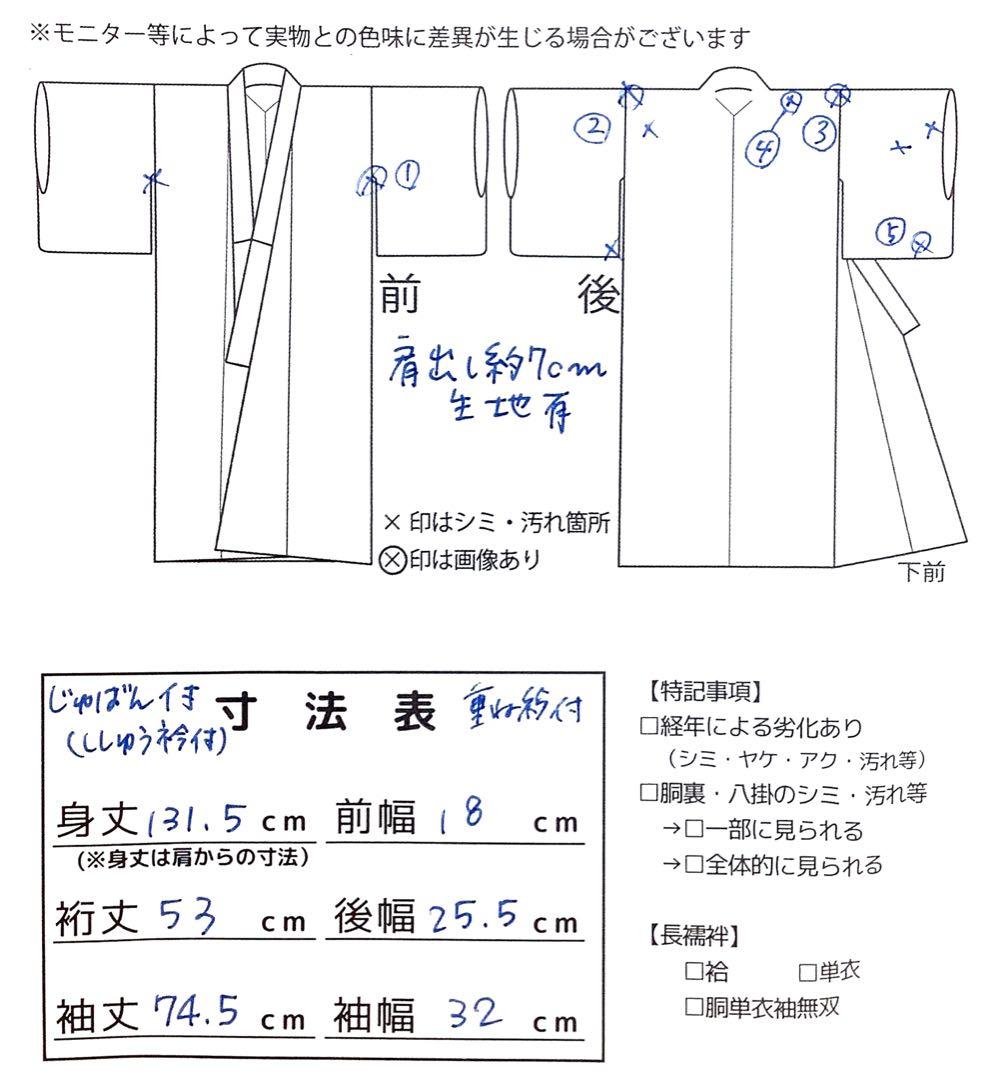 ※モニター等によって実物との色味に差異が生じる場合がございます
①
②
③
④
⑤
前
後
肩出し約7cm
生地有
×印はシミ・汚れ箇所
Ⓧ印は画像あり
下前
じゅばん付き
(ししゅう衿付)
寸法表
重ね衿付
身丈 131.5 cm
前幅 18 cm
(※身丈は肩からの寸法)
裄丈 53 cm
後幅 25.5 cm
袖丈 74.5 cm
袖幅 32 cm
【特記事項】
□経年による劣化あり
(シミ・ヤケ・アク・汚れ等)
□胴裏・八掛のシミ・汚れ等
→□一部に見られる
→□全体的に見られる
【長襦袢】
□袷 □単衣
□胴単衣袖無双